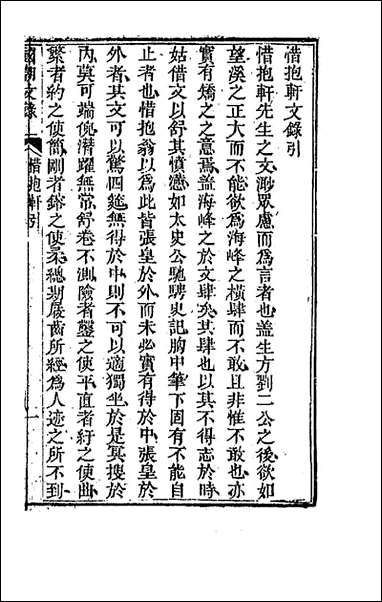 惜抱軒文錄引
惜抱軒先生之文渺眾慮而爲言者也蓋生方劉二公之後欲如
望溪之正大而不能欲爲海峰之橫肆而不敢且非惟不敢也亦
實有矯之之意焉蓋海峰之於文肆矣其肆也以其不得志於時
姑借文以舒其憤懣如太史公馳騁史記胸中筆下固有不能自
止者也惜抱翁以爲此皆張皇於外而未必實有得於中張皇於
外者其文可以驚四筵無得於中則不可以適獨坐於是冥搜於
內莫可端倪潛躍無常舒卷不測險者鏟之使平直者紆之使曲
繁者約之使簡剛者鎔之使柔總期嚴齒所經爲人迹之所不到
國朝文錄
惜抱軒引
一